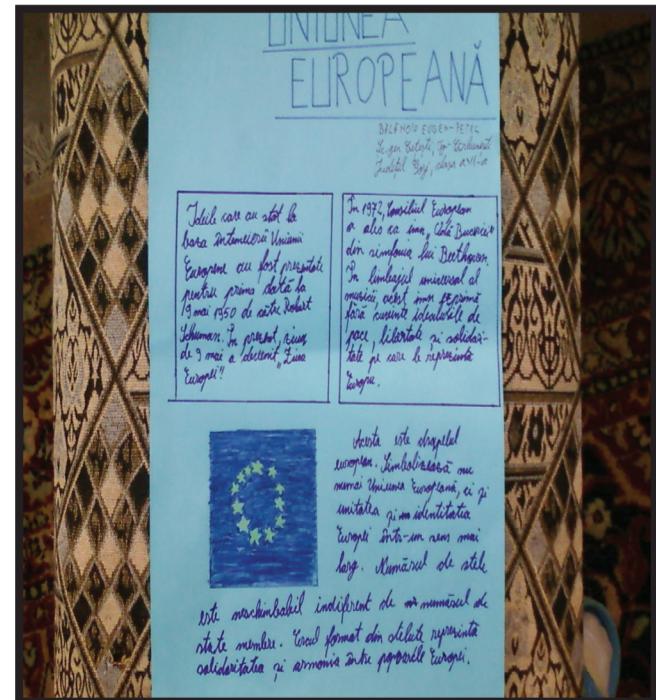 UNIUNEA
EUROPEANĂ
EUGEN-PETRE
clasa a VII-a
Ideile care au stat la
baza întemeierii Uniunii
Europene au fost prezentate
pentru prima dată la
9 mai 1950 de către Robert
Schuman. În prezent, ziua
de 9 mai a devenit „Ziua
Europei"!
În 1972, Consiliul European
a ales ca imn „Oda Bucuriei"
din simfonia lui Beethoven.
În limbajul universal al
muzicii, acest imn exprimă
fără cuvinte idealurile de
pace, libertate și solidari-
tate pe care le reprezintă
Europa.
Acesta este drapelul
european. Simbolizează nu
numai Uniunea Europeană, ci și
unitatea și identitatea
Europei într-un sens mai
larg. Numărul de stele
este neschimbabil indiferent de numărul de
state membre. Cercul format din steluțe reprezintă
solidaritatea și armonia între popoarele Europei.